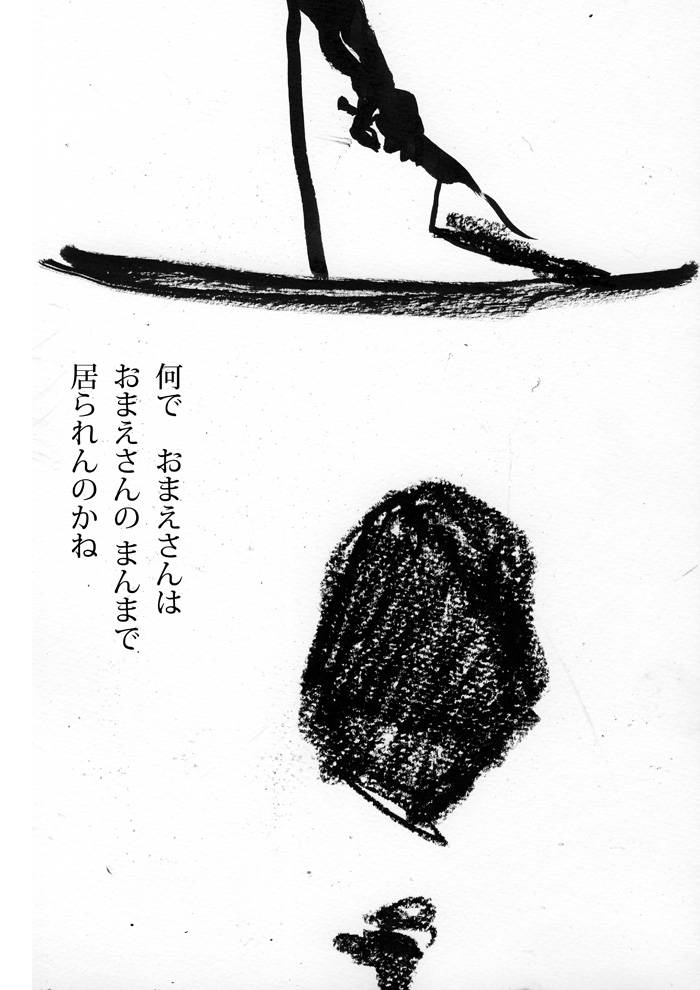 何で　おまえさんは
おまえさんの まんまで
居られんのかね